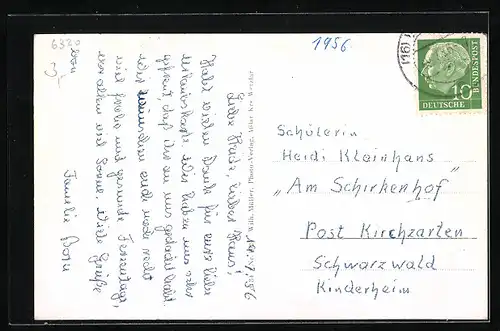 6320
1956.
(16)
10
DEUTSCHE
BUNDESPOST
Schülerin
Heidi Kleinhans
"Am Schirkenhof"
Post Kirchzarten
Schwarzwald
Kinderheim
1956
Liebe Heidi, lieber Hans!
Habt vielen Dank für eure liebe
Wir haben uns sehr
gefreut, daß ihr an uns gedacht habt
Wir wünschen euch noch recht
viel frohe und gesunde Ferientage,
vor allem viel Sonne. Viele Grüße
Familie
Wilh. Müller, Photo-Verlag,